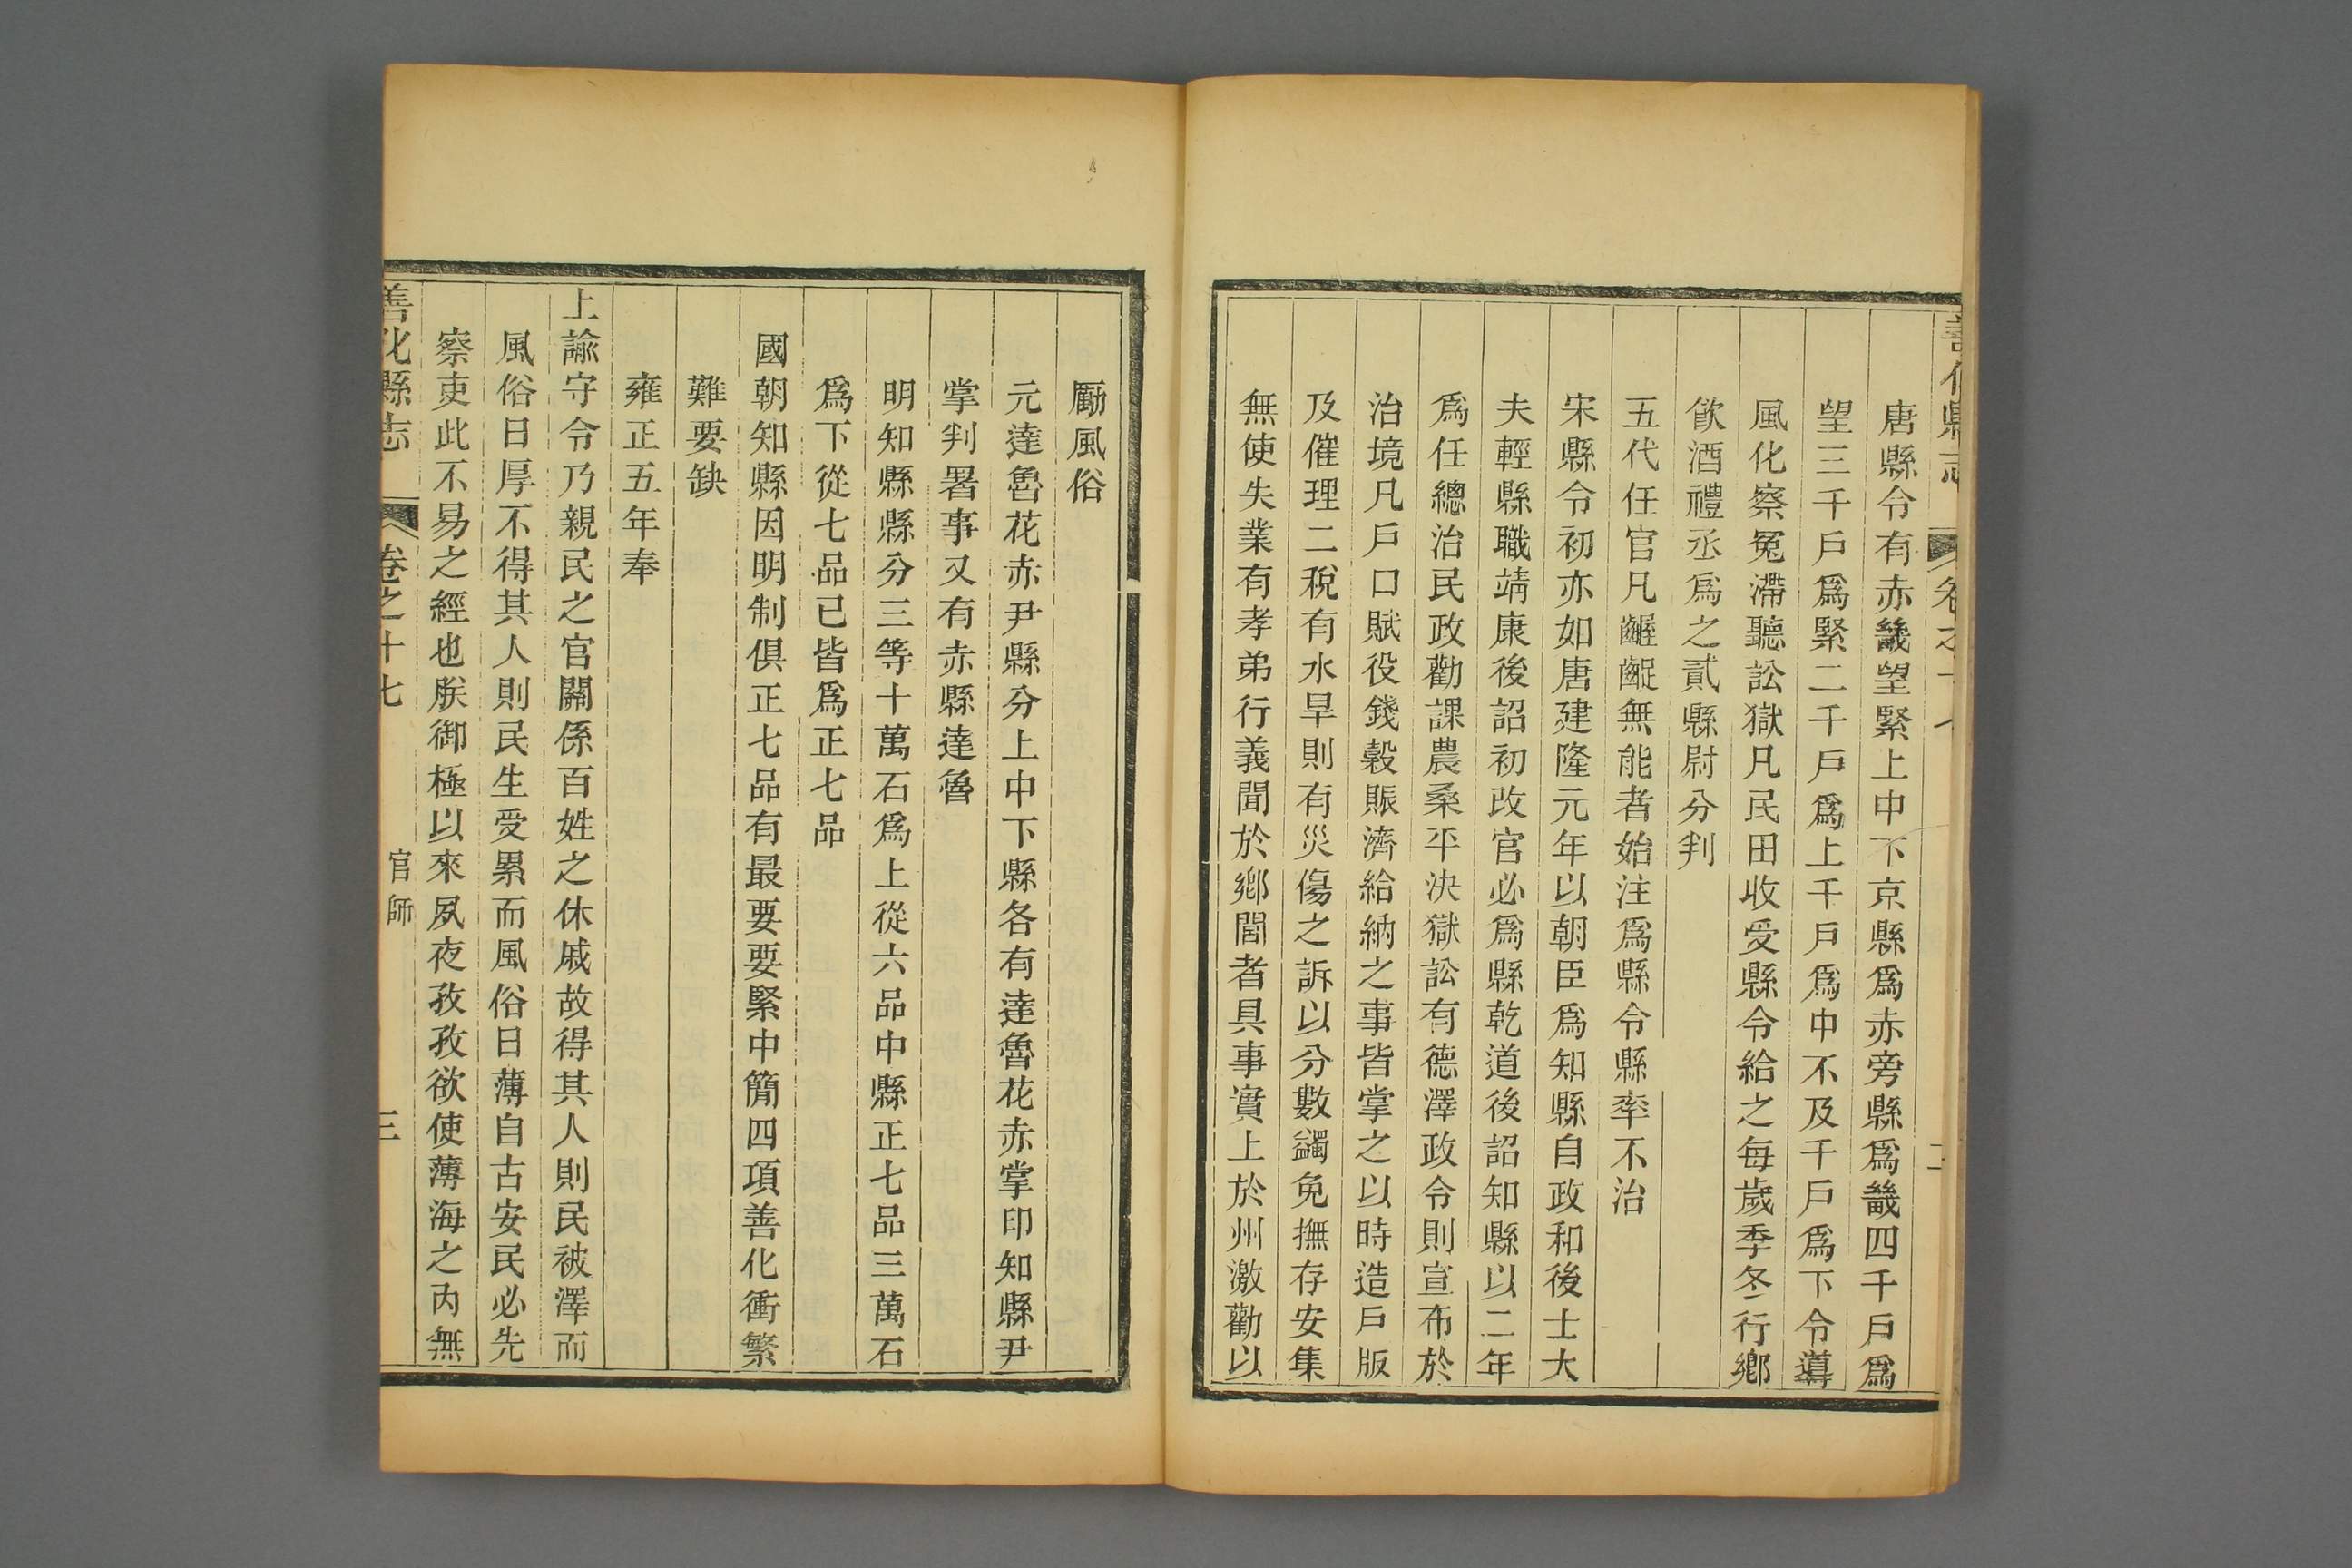 唐縣令有赤畿望緊上中下京縣爲赤旁縣爲畿四千戶爲
望三千戶爲緊二千戶爲上千戶爲中不及千戶爲下令導
風化察冤滯聽訟獄凡民田收受縣令給之每歲季冬行鄉
飮酒禮丞爲之貳縣尉分判
五代任官凡齷齪無能者始注爲縣令縣率不治
宋縣令初亦如唐建隆元年以朝臣爲知縣自政和後士大
夫輕縣職靖康後詔初改官必爲縣乾道後詔知縣以二年
爲任總治民政勸課農桑平決獄訟有德澤政令則宣布於
治境凡戶口賦役錢穀賑濟給納之事皆掌之以時造戶版
及催理二稅有水旱則有災傷之訴以分數蠲免撫存安集
無使失業有孝弟行義聞於鄉閭者具事實上於州激勸以
勵風俗
元達魯花赤尹縣分上中下縣各有達魯花赤掌印知縣尹
掌判署事又有赤縣達魯
明知縣縣分三等十萬石爲上從六品中縣正七品三萬石
爲下從七品已皆爲正七品
國朝知縣因明制俱正七品有最要要緊中簡四項善化衝繁
難要缺
雍正五年奉
上諭守令乃親民之官關係百姓之休戚故得其人則民被澤而
風俗日厚不得其人則民生受累而風俗日薄自古安民必先
察吏此不易之經也朕御極以來夙夜孜孜欲使薄海之內無
善化縣志 卷之十七 官師 三